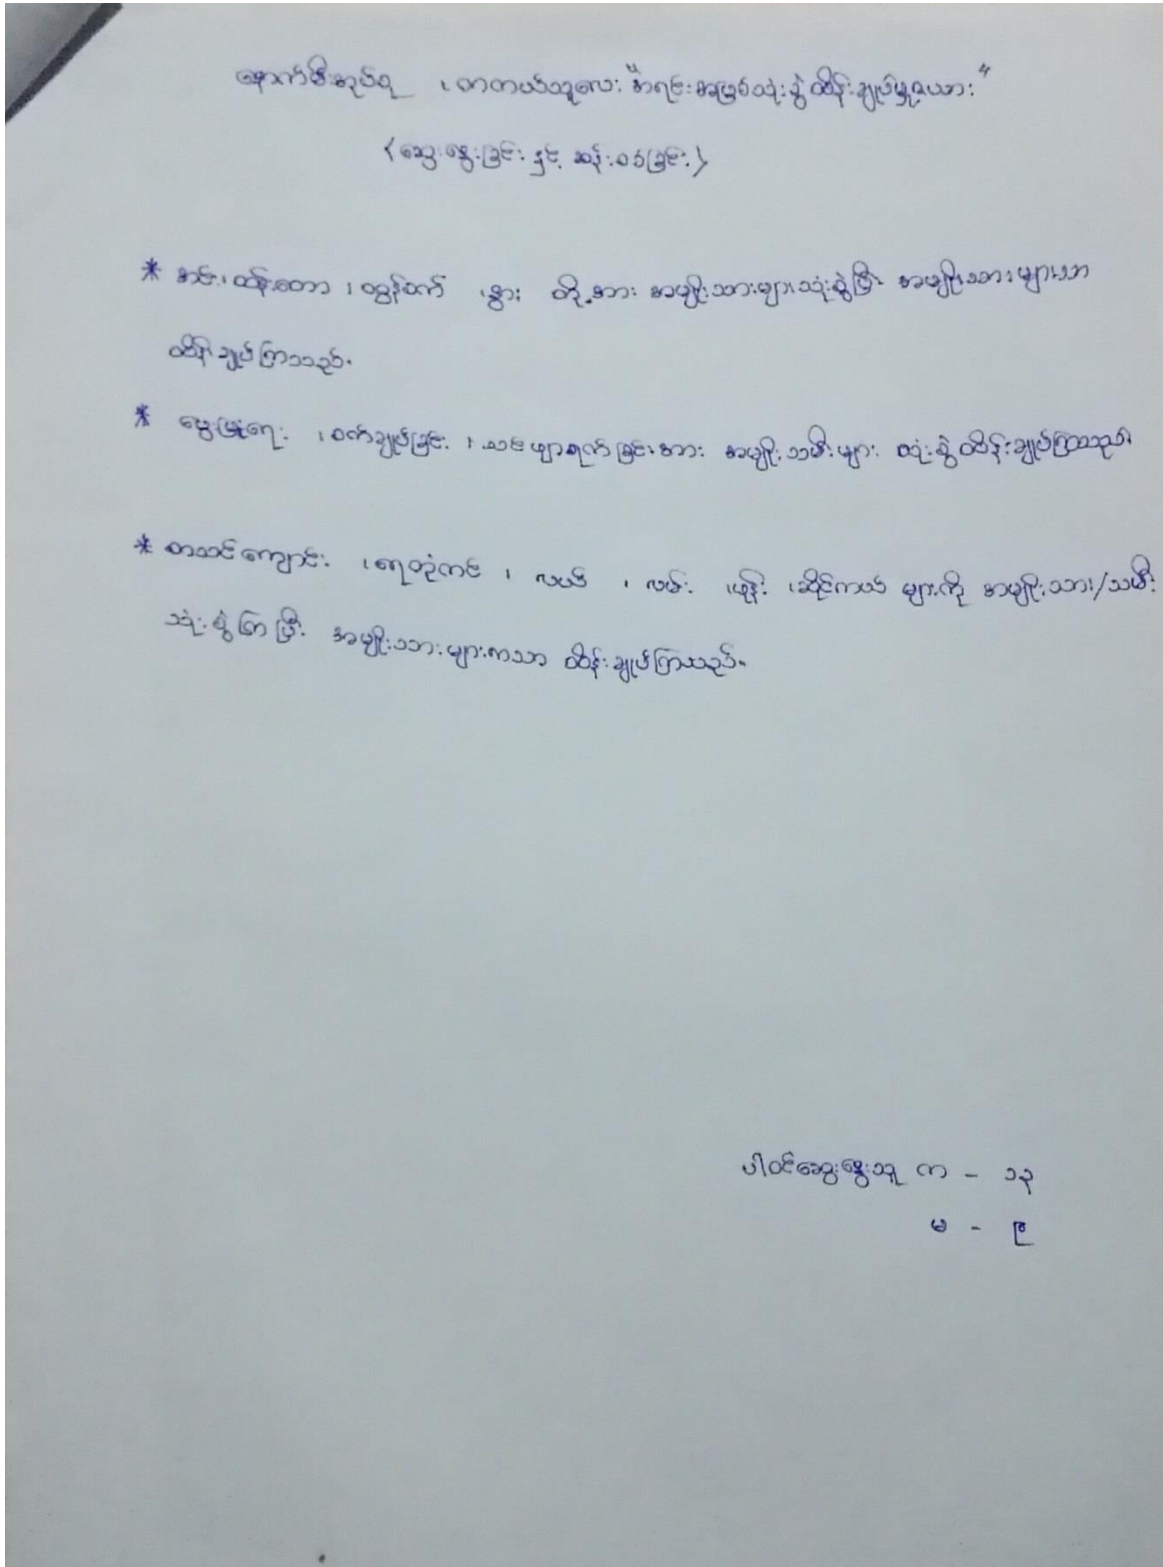 နောက်မီးအုပ်စု ၊ တကယ်သူလေး "အရင်းအမြစ်သုံးစွဲထိန်းချုပ်မှုဇယား"
(ဆွေးနွေးခြင်း နှင့် ဆန်းစစ်ခြင်း)
* ၊ ထန်းတော ၊ ထွန်စက် ၊ နွား တို့အား အမျိုးသားများသုံးစွဲပြီး အမျိုးသားများသာ
ထိန်းချုပ်ကြသည်။
* မွေးမြူရေး ၊ စက်ချုပ်ခြင်း ၊ သင်ဖျာရက်ခြင်းအား အမျိုးသမီးများ သုံးစွဲထိန်းချုပ်ကြသည်။
* စာသင်ကျောင်း ၊ ရေတုံကင် ၊ လယ် ၊ လမ်း ၊ ဖုန်း ၊ ဆိုင်ကယ် များကို အမျိုးသား/သမီး
သုံးစွဲကြပြီး အမျိုးသားများကသာ ထိန်းချုပ်ကြသည်။
ပါဝင်ဆွေးနွေးသူ က - ၁၃
မ - ၉